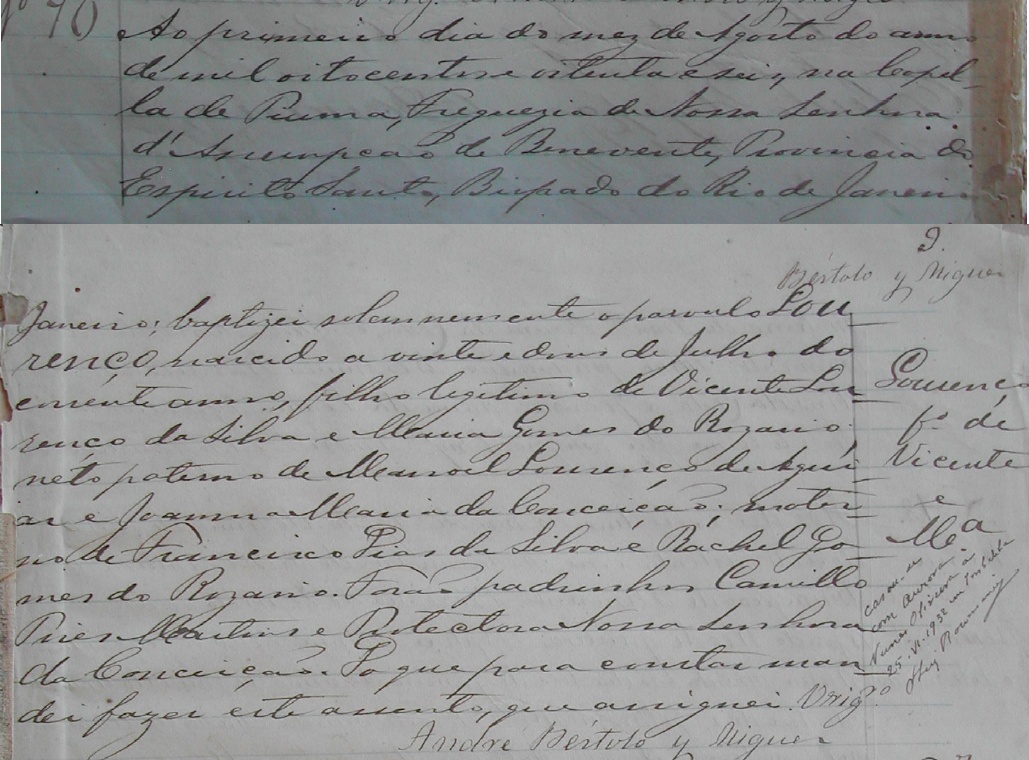 Nº 70
Ao primeiro dia do mez de Agosto do anno
de mil oitocentos e oitenta e seis, na Capel-
la de Piuma, Freguezia de Nossa Senhora
d'Assumpção de Benevente, Provincia do
Espirito Santo, Bispado do Rio de Janeiro
2.
Bértolo y Miguer
Janeiro; baptizei solennemente o parvulo Lou
renço, nascido a vinte e dous de Julho do
corrente anno, filho legitimo de Vicente Lou
renço da Silva e Maria Gomes do Rozario:
neto paterno de Manoel Lourenço de Agui
ar e Joanna Maria da Conceição; mater
no de Francisco Pires da Silva e Rachel Go
mes do Rozario. Forão padrinhos Camillo
Pires Martins e Protectora Nossa Senhora
da Conceição. Do que para constar man
dei fazer este assento, que assignei. Vrigº
André Bértolo y Miguer
Lourenço
fº de
Vicente
e
Mª
casou-se
com Aurora
Nunes Oliveira à
25-VI-1932